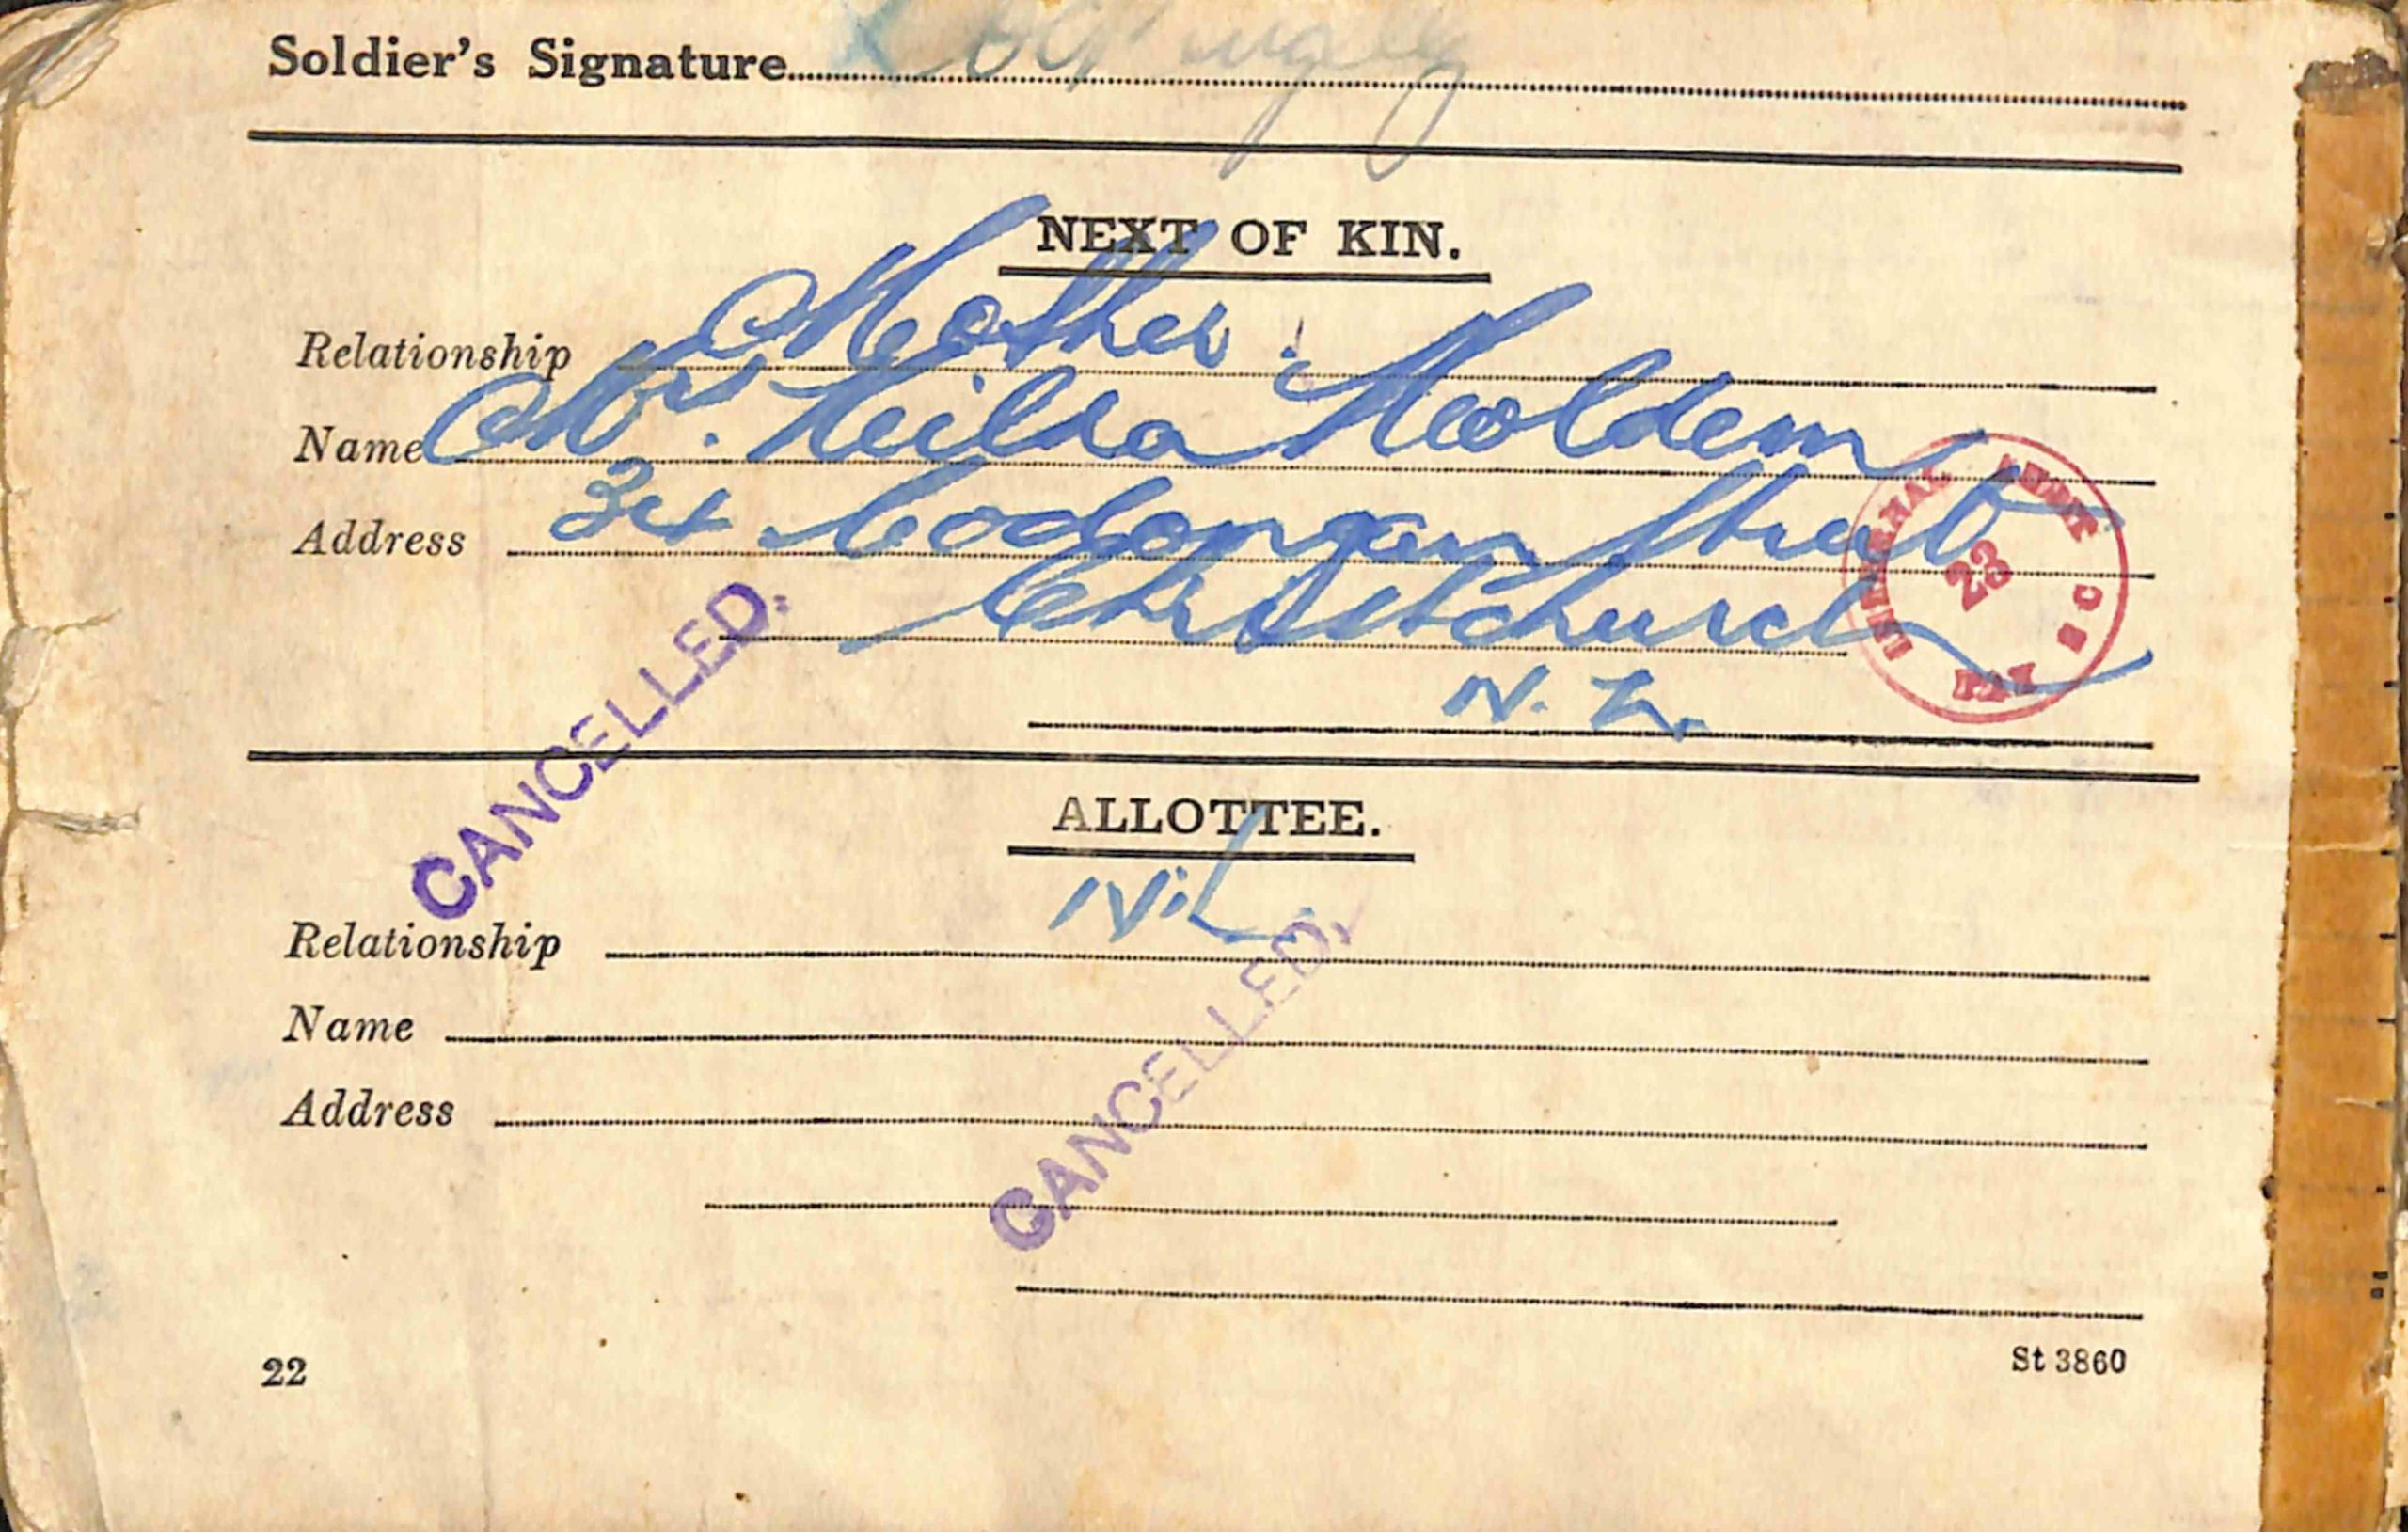 Soldier's Signature
NEXT OF KIN.
Relationship Mother.
Name Mrs. Heilda Holdem
Address 34 Cadogan Street
Christchurch
N. Z.
CANCELLED.
23
PAY
ALLOTTEE.
NiL
Relationship
Name
Address
CANCELLED.
22
St 3860